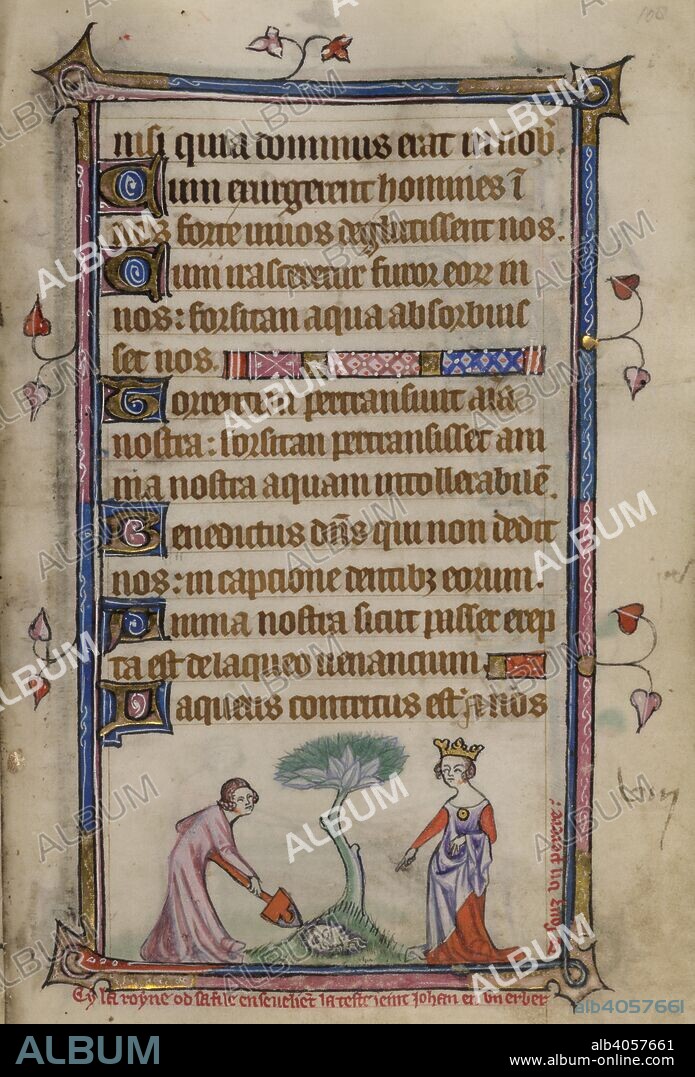 nisi quia dominus erat in nob.
Cum exurgerent homines ī
forte vivos deglutissent nos.
Cum irasceretur furor eorz in
nos: forsitan aqua absorbuis
set nos.
Torrentem pertransivit aīa
nostra: forsitan pertransisset ani
ma nostra aquam intollerabilē.
Benedictus dn̄s qui non dedit
nos: in captione dentibz eorum.
Anima nostra sicut passer erep
ta est de laqueo venancium.
Laqueus contritus est: & nos
Cy la royne od sa file enseveliēt la teste seint Johan en un erber
ALBUM
alb4057661
ALBUM
alb4057661
www.album-online.com